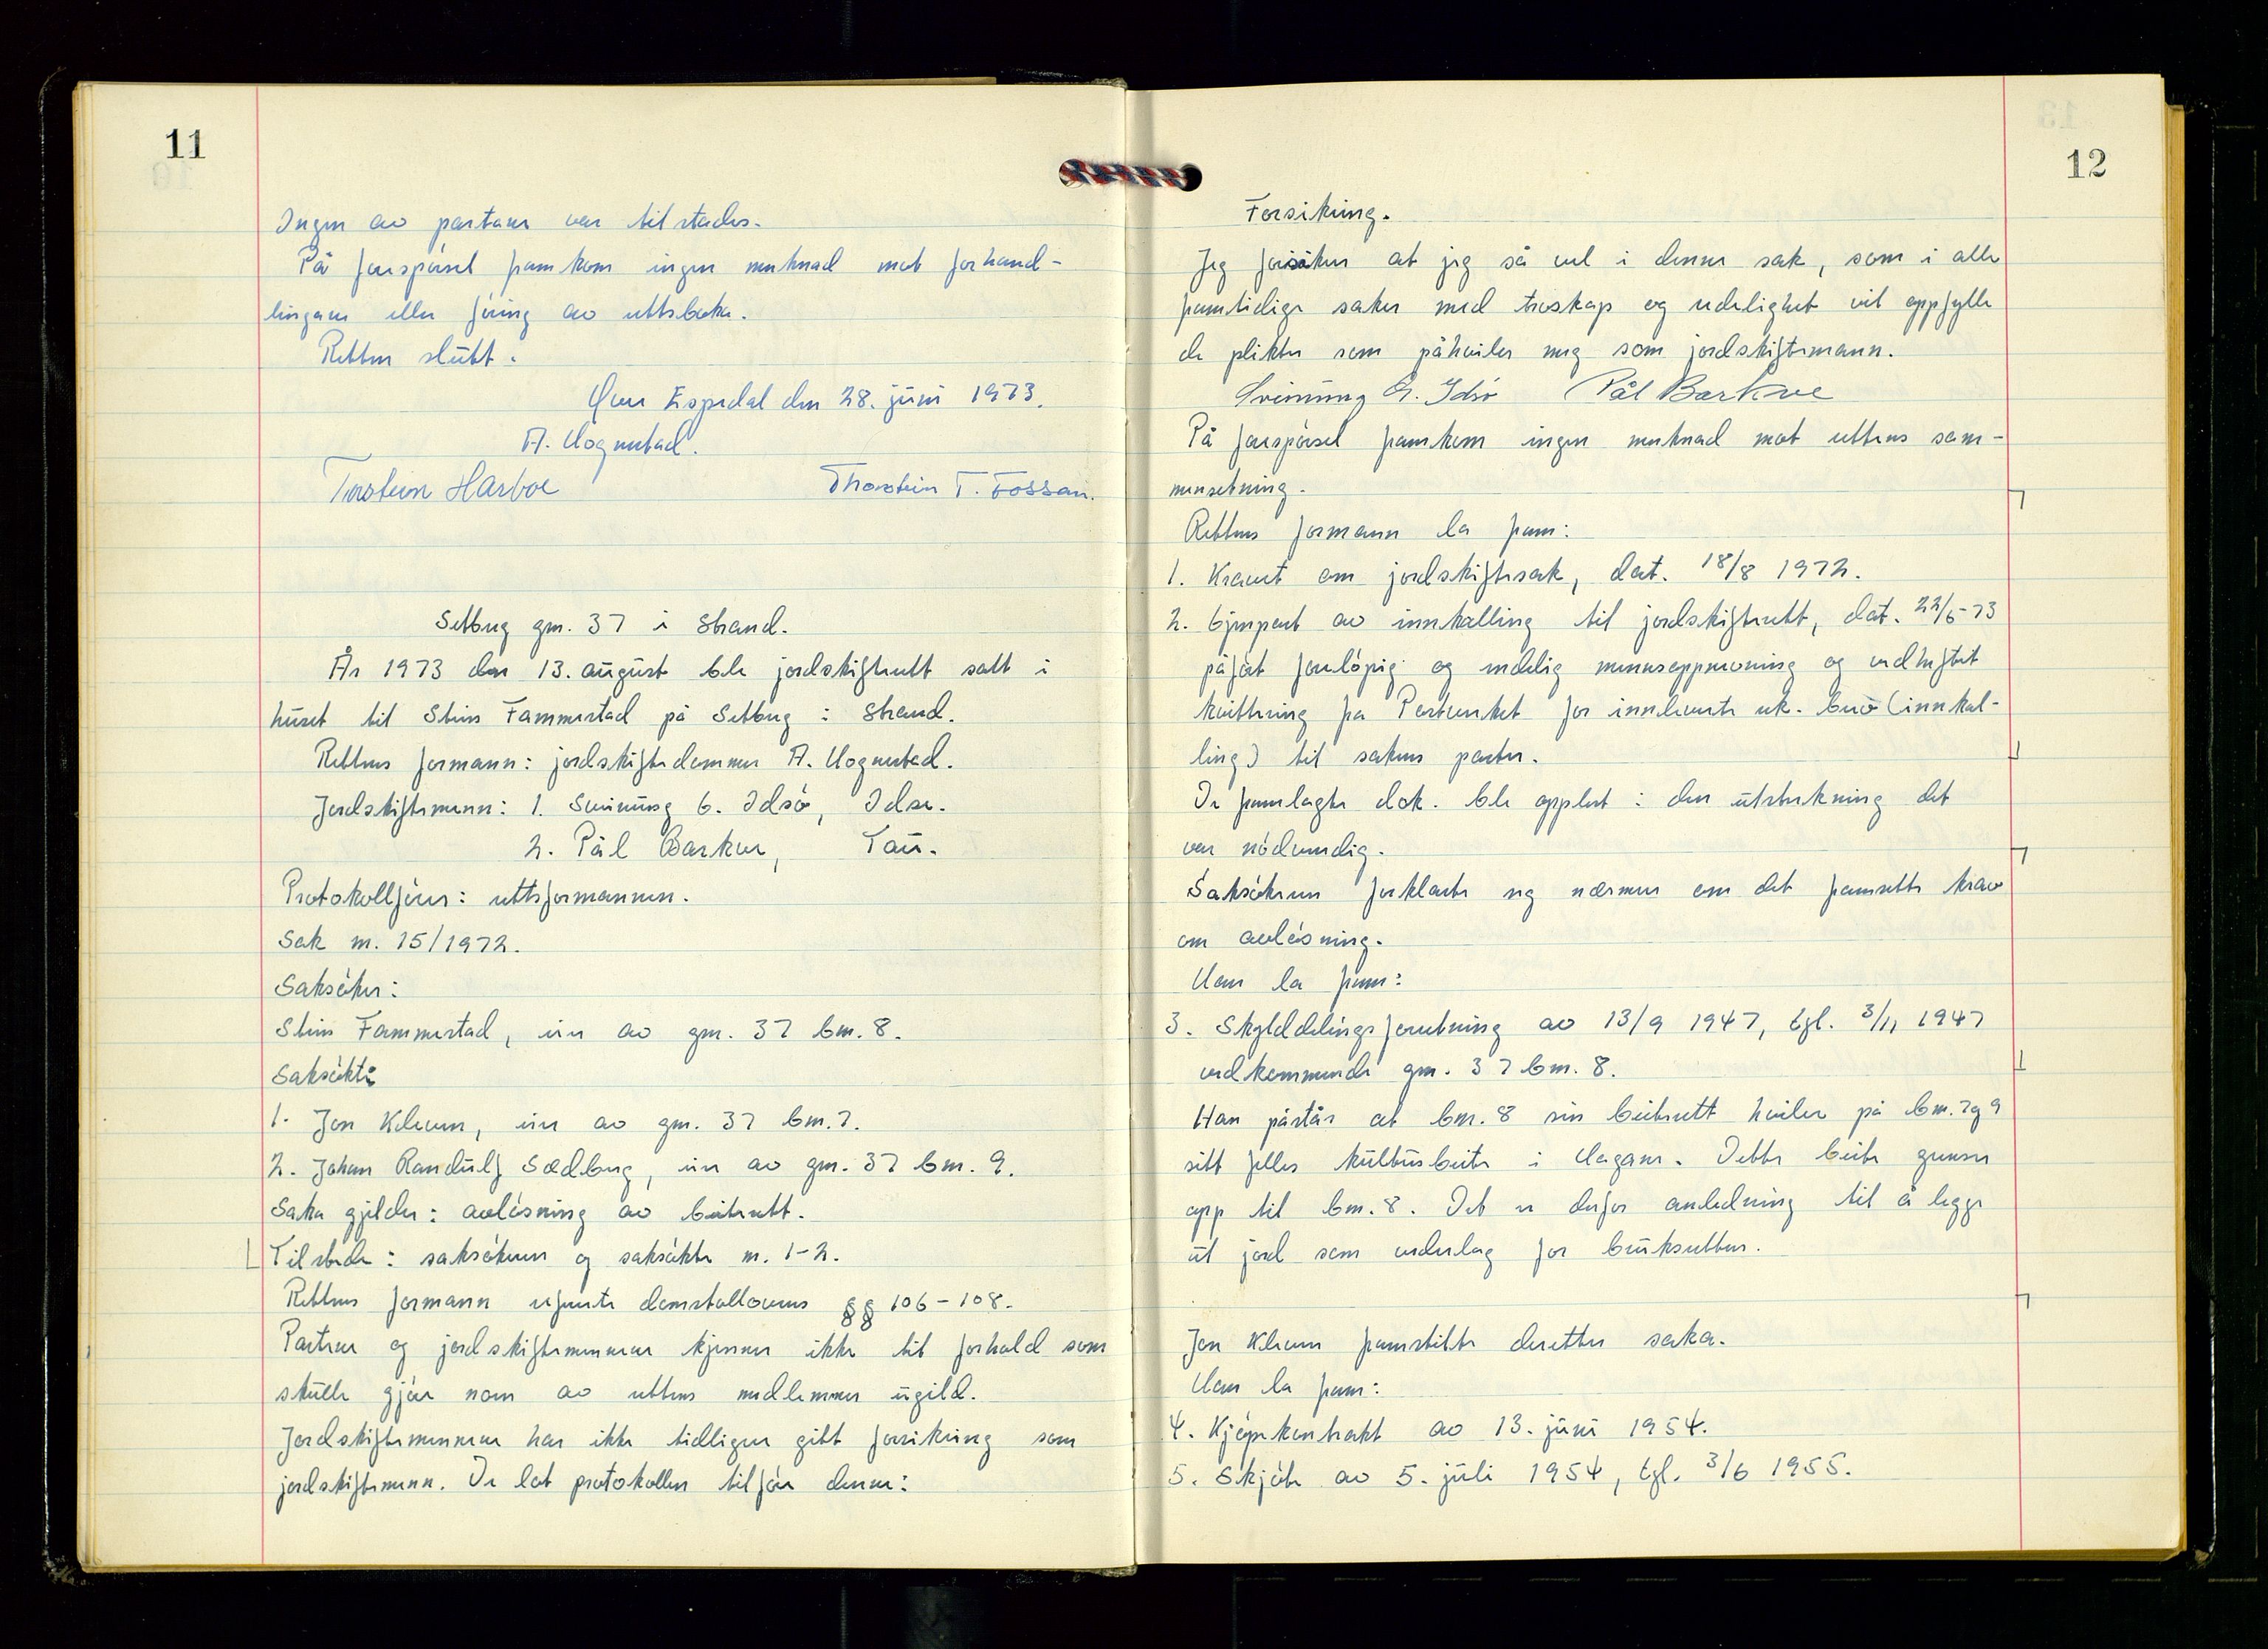 11
Ingen av partane var til stades.
På forespørsel framkom ingen merknad mot forhand-
lingane eller føring av rettsboka.
Retten slutt.
Øvre Espedal den 28. juni 1973.
A. Hognestad.
Torstein Harboe Thorstein T. Fossan.
Setberg gnr. 37 i Strand.
År 1973 den 13. august ble jordskifterett satt i
huset til Stein Fammestad på Setberg i Strand.
Rettens formann: jordskiftedommer A. Hognestad.
Jordskiftemenn: 1. Sveinung G. Idsø, Idse.
2. Pål Barkve, Tau.
Protokollfører: rettsformannen.
Sak nr. 15/1972.
Saksøker:
Stein Fammestad, eier av gnr. 37 bnr. 8.
Saksøkte:
1. Jon Kleven, eier av gnr. 37 bnr. 7.
2. Johan Randulf Sædberg, eier av gnr. 37 bnr. 9.
Saka gjelder: avløsning av beiterett.
Tilstede: saksøkeren og saksøkte nr. 1-2.
Rettens formann refererte domstollovens §§ 106-108.
Partene og jordskiftemennene kjenner ikke til forhold som
skulle gjøre noen av rettens medlemmer ugild.
Jordskiftemennene har ikke tidligere gitt forsikring som
jordskiftemenn. De lot protokollen tilføre denne:
12
Forsikring.
Jeg forsikrer at jeg så vel i denne sak, som i alle
framtidige saker med troskap og redelighet vil oppfylle
de plikter som påhviler meg som jordskiftemann.
Sveinung G. Idsø Pål Barkve
På forespørsel framkom ingen merknad mot rettens sam-
mensetning.
Rettens formann la fram:
1. Kravet om jordskiftesak, dat. 18/8 1972.
2. Gjenpart av innkalling til jordskifterett, dat. 22/5-73
påført foreløpig og endelig mennsoppnevning og vedheftet
kvittering fra Postverket for innleverte rek. brev (innkal-
ling) til sakens parter.
De framlagte dok. ble opplest i den utstrekning det
var nødvendig.
Saksøkeren forklarte seg nærmere om det framsette krav
om avløsning.
Han la fram:
3. Skylddelingsforretning av 13/9 1947, tgl. 3/11 1947
vedkommende gnr. 37 bnr. 8.
Han påstår at bnr. 8 sin beiterett hviler på bnr. 7 og 9
sitt felles kulturbeite i Hagane. Dette beite grenser
opp til bnr. 8. Det er derfor anledning til å legge
ut jord som vederlag for bruksretten.
Jon Kleven framstilte deretter saka.
Han la fram:
4. Kjøpekontrakt av 13. juni 1954.
5. Skjøte av 5. juli 1954, tgl. 3/6 1955.